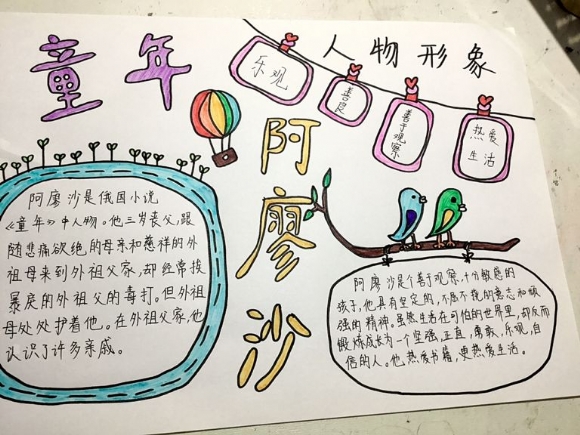 童年
人物形象
乐观
善良
善于观察
热爱
生活
阿廖沙
阿廖沙是俄国小说
《童年》中人物。他三岁丧父,跟
随悲痛欲绝的母亲和慈祥的外
祖母来到外祖父家,却经常挨
暴戾的外祖父的毒打。但外祖
母处处护着他。在外祖父家,他
认识了许多亲戚。
阿廖沙是个善于观察,十分敏感的
孩子,他具有坚定的,不屈不挠的意志和顽
强的精神。虽然生活在可怕的世界里,却反而
锻炼成长为一个坚强,正直,勇敢,乐观,自
信的人。他热爱书籍,更热爱生活。